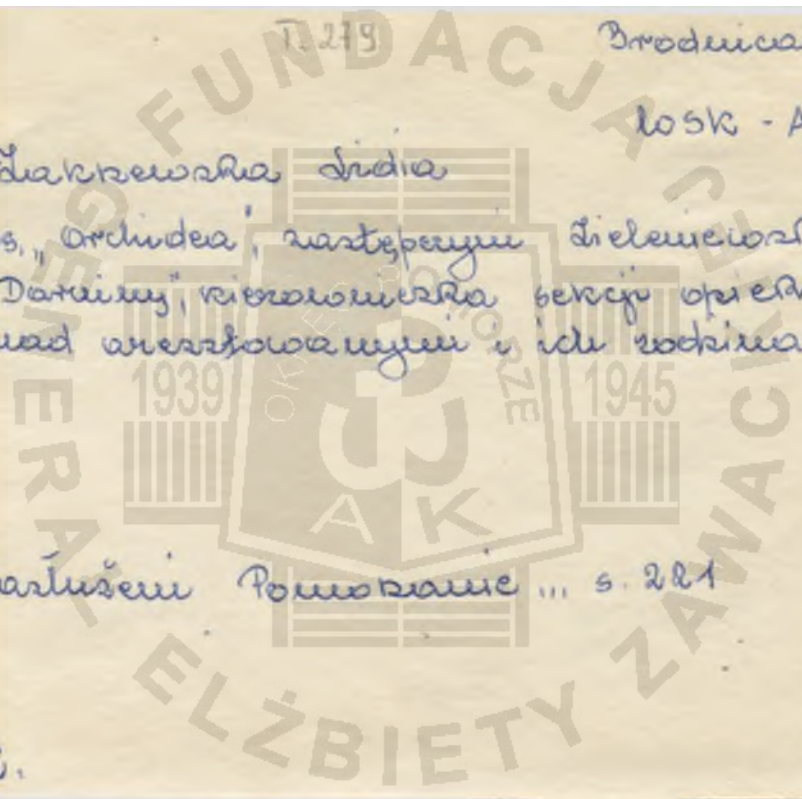 T. 279
Brodnica
WSK - A
Zakrzewska Lidia
s. „Orchidea", zastępczyni Zieleniewsk
Daniny", kierowniczka sekcji opiek
nad aresztowanymi i ich rodzina
asłużeni Pomorzanie ... s. 221
FUNDACJA GENERAŁ ELŻBIETY ZAWACKIEJ
OKRĘG POMORZE
1939 1945
AK